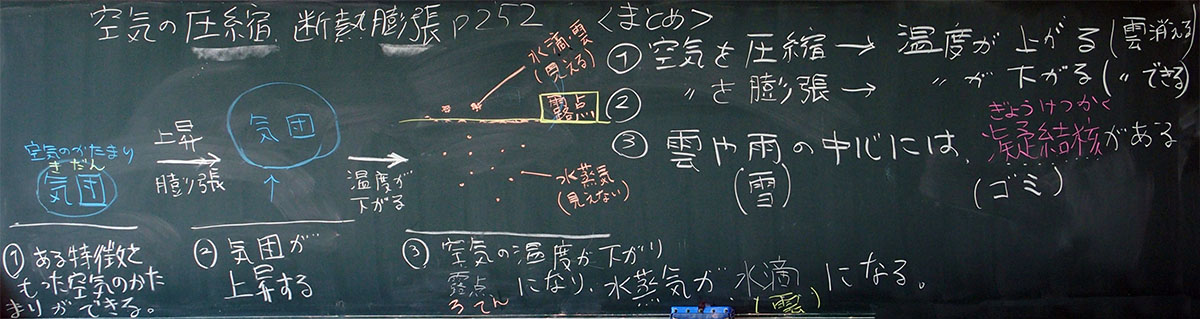 空気の圧縮、断熱膨張 p252
空気のかたまり
きだん
気団
上昇
膨張
気団
↑
温度が
下がる
水滴、雲
(見える)
露点
水蒸気
(見えない)
①ある特徴を
もった空気のかた
まりができる。
②気団が
上昇する
③空気の温度が下がり
露点になり、水蒸気が水滴になる。
ろてん
(雲)
<まとめ>
①空気を圧縮→温度が上がる(雲消える)
②〃を膨張→〃が下がる(〃できる)
ぎょうけつかく
③雲や雨の中心には、凝結核がある
(雪)
(ゴミ)